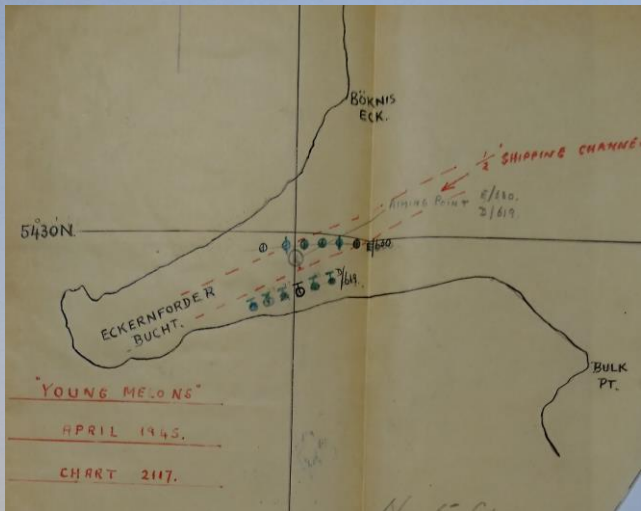 BÖKNIS
ECK.
½" SHIPPING CHANNEL
AIMING POINT
E/630.
D/619.
54°30'N.
E/630
D/619.
ECKERNFORDER
BUCHT.
BULK
PT.
"YOUNG MELONS"
APRIL 1945.
CHART 2117.